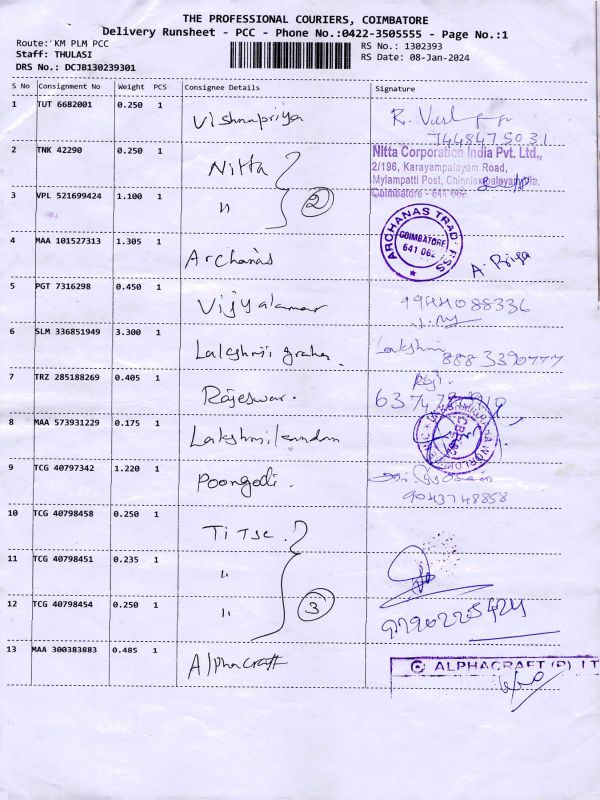 THE PROFESSIONAL COURIERS, COIMBATORE
Delivery Runsheet - PCC - Phone No.:0422-3505555 - Page No.:1
Route: KM PLM PCC
RS No.: 1302393
Staff: THULASI
RS Date: 08-Jan-2024
DRS No.: DCJB130239301
S No Consignment No Weight PCS Consignee Details Signature
1 TUT 6682001 0.250 1 Vishnupriya R.
7448475031
2 TNK 42290 0.250 1 Nitta Nitta Corporation India Pvt. Ltd.,
2/196, Karayampalayam Road,
Mylampatti Post, Chinniampalayam
Coimbatore - 641 062
3 VPL 521699424 1.100 1 " 2
4 MAA 101527313 1.305 1 Archanas ARCHANAS TRADERSS COIMBATORE 641 062 A. Priya
5 PGT 7316298 0.450 1 Vijyalamar 9944088336
6 SLM 336851949 3.300 1 Lakshmi graha. Lakshmi
8883390777
7 TRZ 285188269 0.405 1 Rajeswar. Raji.
8 MAA 573931229 0.175 1 Lakshmikandan
9 TCG 40797342 1.220 1 Poongodi.
9043748858
10 TCG 40798458 0.250 1 Ti Tsc.
11 TCG 40798451 0.235 1 "
12 TCG 40798454 0.250 1 " 3
13 MAA 300383883 0.485 1 Alphacraft ALPHACRAFT (P) LT